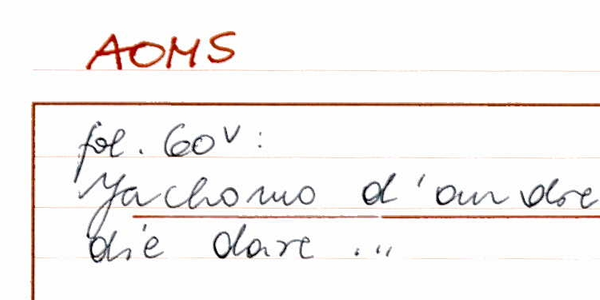 AOMS
fol. 60v:
Yachomo d'andre
die dare ...